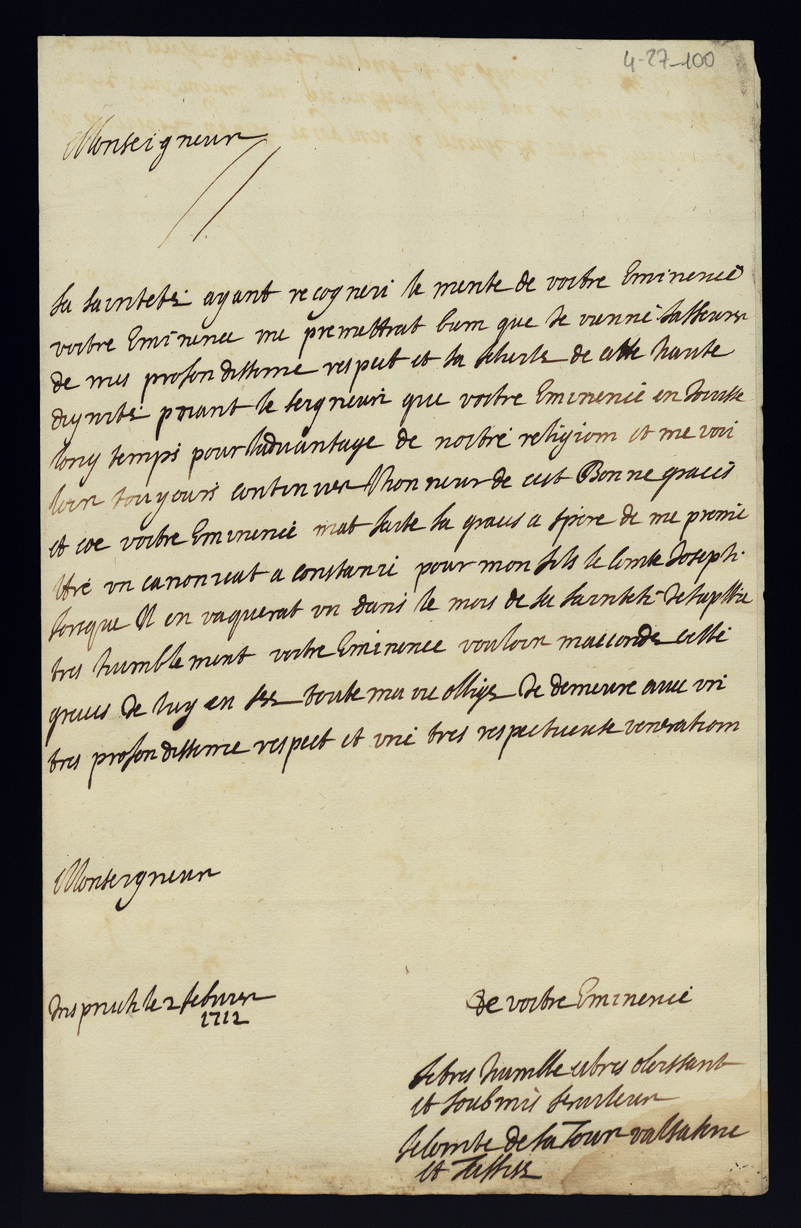 4-27-100
Monseigneur
Sa Saintete ayant recogneu le merite de vostre Eminence
vostre Eminence me premettrat bum que Je vienne lasseurer
de mes profondisseme respect et la felicite de cette haute
dignite priant le seigneur que vostre Eminence en Jouisse
long temps pour ladvantage de nostre religiom et me voü
loir touyours continuer lhonneur de cest Bonne graces
et coe vostre Eminence mat faite la graces a spire de me promé
ttre un canonicat a constance pour mon fils le Comte Joseph
lorsque Il en vaquerat un dans le mois de sa saintete Je supplie
tres humblement vostre Eminence vouloir maccorder cette
graces de luy en toute ma vie oblige Je demeure avec un
tres profondisseme respect et une tres respectueuse veneratiom
Monseigneur
Inspruch le 2 febvrer
1712
de vostre Eminence
le tres humble et tres obeissant
et soubmis serviteur
le Comte de la Tour valsasine
et Tassis